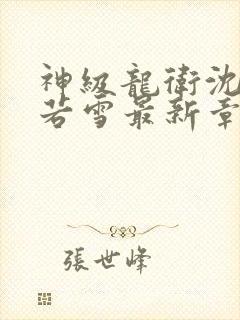 神級龍衛沈
若雪最新章
張世峰